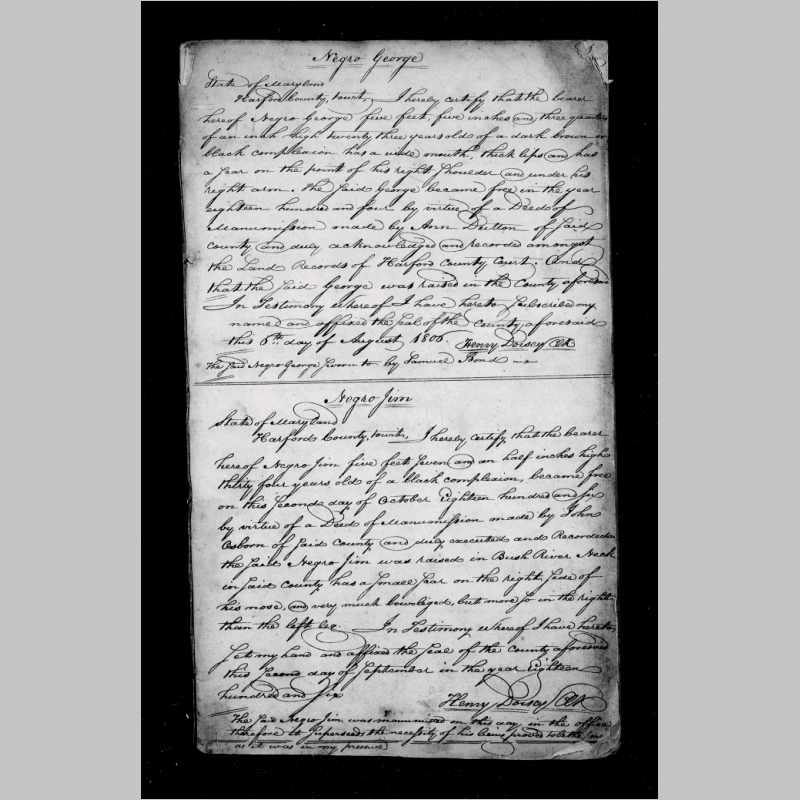 Negro George
State of Maryland
Harford County, towit, I hereby certify that the bearer
hereof Negro George five feet, five inches and three quarters
of an inch high twenty three years old of a dark brown or
black complexion has a wide mouth, thick lips and has
a scar on the point of his right shoulder and under his
right arm. The said George became free in the year
eighteen hundred and four by virtue of a Deed of
Manumission made by Ann Dutton of said
County and duly acknowledged and recorded amongst
the Land Records of Harford County Court. And
that the said George was raised in the County aforesaid
In Testimony whereof I have hereto subscribed my
name and affixed the seal of the County aforesaid
this 6th day of August 1806. Henry Dorsey Clk
The said Negro George sworn to by Samuel Bond
Negro Jim
State of Maryland
Harford County, towit, I hereby certify that the bearer
hereof Negro Jim five feet seven and an half inches high
thirty four years old of a black complexion, became free
on this second day of October Eighteen hundred and six
by virtue of a Deed of Manumission made by John
Osborn of said County and duly executed and Recorded
the said Negro Jim was raised in Bush River Neck
in said County has a small scar on the right side of
his nose, and very much bowleged, but more so in the right
than the left leg. In Testimony whereof I have hereto
set my hand and affixed the seal of the County aforesaid
this second day of September in the year Eighteen
hundred and six
Henry Dorsey Clk
The said Negro Jim was manumited on this day in the office
therefore it superseeds the necessity of his being proved to be the
as it was in my presence